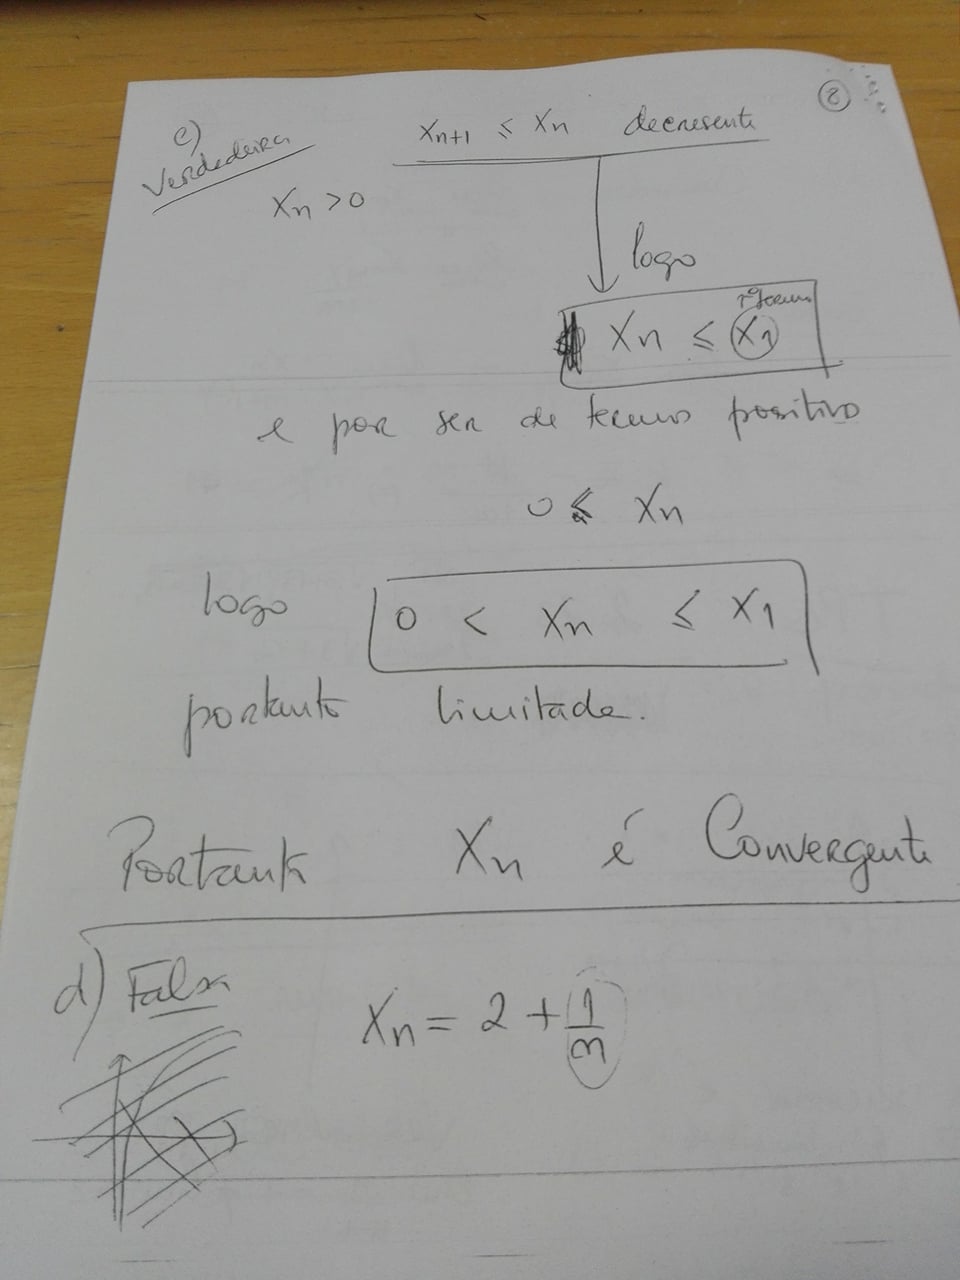 ②
c)
Verdadeira
Xn+1 ≤ Xn decresente
Xn > 0
logo
1º termo
Xn ≤ X1
e por ser de termos positivo
0 ≤ Xn
logo 0 < Xn ≤ X1
portanto limitada.
Portanto Xn é Convergente
d) Falsa
Xn = 2 + 1/n